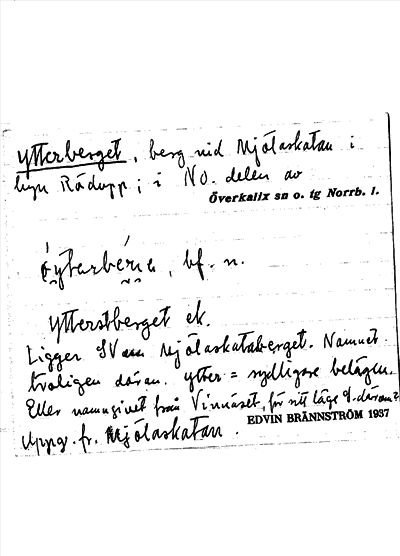 Ytterberget, berg vid Mjölaskatan i
byn Rödupp; i NO. delen av
Överkalix sn o. tg Norrb. l.
bf. n.
Ytterstberget ek.
Ligger SV om Mjölaskataberget. Namnet
troligen därav. ytter = sydligare belägen.
Eller namngivet från Vinnäset, för sitt läge d. därom?
EDVIN BRÄNNSTRÖM 1937
Uppg. fr. Mjölaskatan.